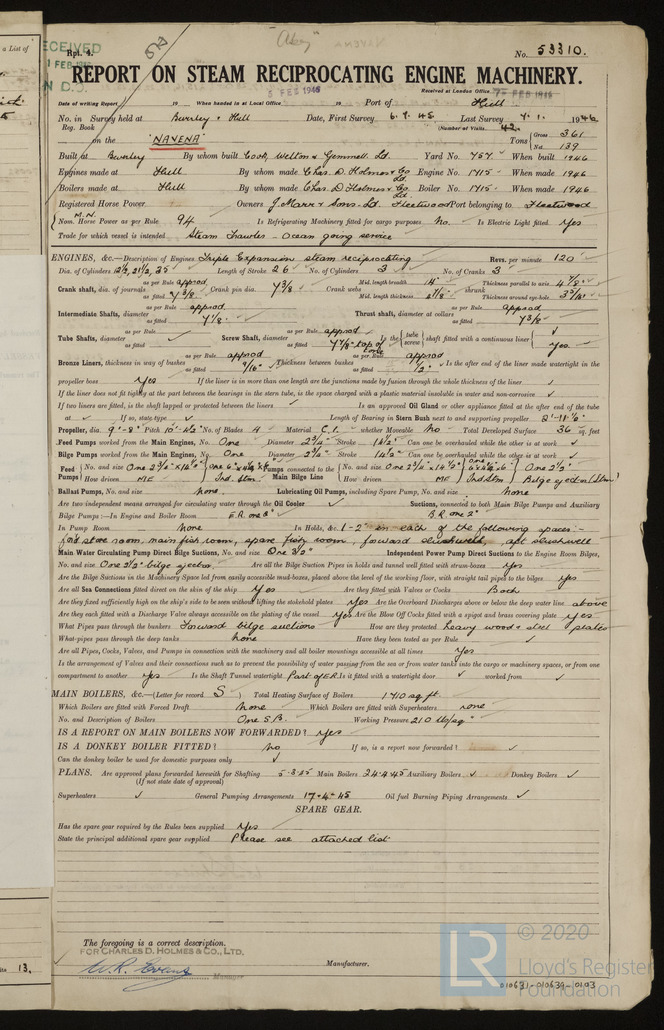 a List of
RECEIVED
FEB 194
N D.O.
Rpt. 4.
No. 53310.
REPORT ON STEAM RECIPROCATING ENGINE MACHINERY.
5 FEB 1946
Received at London Office 7 - FEB 1946
Date of writing Report 19 When handed in at Local Office 19 Port of Hull
No. in Survey held at Beverley & Hull Date, First Survey 6.9.45. Last Survey 7.1. 1946
Reg. Book (Number of Visits 42.
on the "NAVENA" Tons { Gross 361
Net 139
Built at Beverley By whom built Cook, Welton & Gemmell. Ld. Yard No. 757. When built 1946
Engines made at Hull By whom made Chas. D. Holmes & Co Ld. Engine No. 1715. When made 1946
Boilers made at Hull By whom made Chas D. Holmes & Co Ld. Boiler No. 1715. When made 1946
Registered Horse Power Owners J. Marr & Sons. Ld. Fleetwood Port belonging to Fleetwood
Nom. Horse Power as per Rule 94 Is Refrigerating Machinery fitted for cargo purposes No. Is Electric Light fitted Yes
Trade for which vessel is intended Steam Trawler - Ocean going service
ENGINES, &c.—Description of Engines Triple Expansion steam reciprocating Revs. per minute 120
Dia. of Cylinders Length of Stroke 26 No. of Cylinders 3 No. of Cranks 3
Crank shaft, dia. of journals as per Rule approd as fitted 7 3/8" Crank pin dia. 7 3/8 Crank webs Mid. length breadth 14" Mid. length thickness shrunk Thickness parallel to axis 4 7/8" Thickness around eye-hole
Intermediate Shafts, diameter as per Rule approd as fitted 7 1/8" Thrust shaft, diameter at collars as per Rule approd as fitted 7 3/8"
Tube Shafts, diameter as per Rule as fitted Screw Shaft, diameter as per Rule approd as fitted Is the { tube screw } shaft fitted with a continuous liner { Yes
Bronze Liners, thickness in way of bushes as per Rule approd as fitted 9/16" Thickness between bushes as per Rule approd as fitted 1/2" Is the after end of the liner made watertight in the
propeller boss Yes If the liner is in more than one length are the junctions made by fusion through the whole thickness of the liner ✓
If the liner does not fit tightly at the part between the bearings in the stern tube, is the space charged with a plastic material insoluble in water and non-corrosive ✓
If two liners are fitted, is the shaft lapped or protected between the liners ✓ Is an approved Oil Gland or other appliance fitted at the after end of the tube
at ✓ If so, state type ✓ Length of Bearing in Stern Bush next to and supporting propeller 2'-11 1/2"
Propeller, dia. 9'-8" Pitch 10'-4 1/2" No. of Blades 4 Material C.I. whether Moveable No Total Developed Surface 36 sq. feet
Feed Pumps worked from the Main Engines, No. One Diameter 2 3/4" Stroke 14 1/2" Can one be overhauled while the other is at work ✓
Bilge Pumps worked from the Main Engines, No. One Diameter 2 3/4" Stroke 14 1/2" Can one be overhauled while the other is at work ✓
Feed Pumps { No. and size One 2 3/4" x 14 1/2" Pumps connected to the Main Bilge Line { No. and size One 2 3/4" x 14 1/2" One 2 1/2"
How driven ME Ind. Stm. How driven ME Ind Stm Bilge ejector (Stm)
Ballast Pumps, No. and size none Lubricating Oil Pumps, including Spare Pump, No. and size none
Are two independent means arranged for circulating water through the Oil Cooler ✓ Suctions, connected to both Main Bilge Pumps and Auxiliary
Bilge Pumps :—In Engine and Boiler Room E.R. one 2" B.R. one 2"
In Pump Room None In Holds, &c. 1-2" in each of the following spaces:-
ford store room, main fish room, spare fish room, forward slushwell, aft slushwell
Main Water Circulating Pump Direct Bilge Suctions, No. and size One 3 1/2" Independent Power Pump Direct Suctions to the Engine Room Bilges,
No. and size One 2 1/2" bilge ejector. Are all the Bilge Suction Pipes in holds and tunnel well fitted with strum-boxes Yes
Are the Bilge Suctions in the Machinery Space led from easily accessible mud-boxes, placed above the level of the working floor, with straight tail pipes to the bilges Yes
Are all Sea Connections fitted direct on the skin of the ship Yes Are they fitted with Valves or Cocks Both
Are they fixed sufficiently high on the ship's side to be seen without lifting the stokehold plates Yes Are the Overboard Discharges above or below the deep water line above
Are they each fitted with a Discharge Valve always accessible on the plating of the vessel Yes Are the Blow Off Cocks fitted with a spigot and brass covering plate Yes
What Pipes pass through the bunkers Forward bilge suctions How are they protected heavy wood & steel plates
What pipes pass through the deep tanks None Have they been tested as per Rule ✓
Are all Pipes, Cocks, Valves, and Pumps in connection with the machinery and all boiler mountings accessible at all times Yes
Is the arrangement of Valves and their connections such as to prevent the possibility of water passing from the sea or from water tanks into the cargo or machinery spaces, or from one
compartment to another Yes Is the Shaft Tunnel watertight Part of E.R. Is it fitted with a watertight door ✓ worked from ✓
MAIN BOILERS, &c.—(Letter for record S) Total Heating Surface of Boilers 1710 sq. ft.
Which Boilers are fitted with Forced Draft None Which Boilers are fitted with Superheaters none
No. and Description of Boilers One S.B. Working Pressure 210 lb/sq"
IS A REPORT ON MAIN BOILERS NOW FORWARDED? Yes
IS A DONKEY BOILER FITTED? No If so, is a report now forwarded? ✓
Can the donkey boiler be used for domestic purposes only ✓
PLANS. Are approved plans forwarded herewith for Shafting 5.3.25 Main Boilers 24.4.45 Auxiliary Boilers ✓ Donkey Boilers ✓
(If not state date of approval)
Superheaters ✓ General Pumping Arrangements 17.4.45 Oil fuel Burning Piping Arrangements ✓
SPARE GEAR.
Has the spare gear required by the Rules been supplied Yes
State the principal additional spare gear supplied Please see attached list
The foregoing is a correct description.
FOR CHARLES D. HOLMES & CO., LTD.
Manager Manufacturer.
13.
© 2020
LR
Lloyd's Register
Foundation
010631-010639-0193